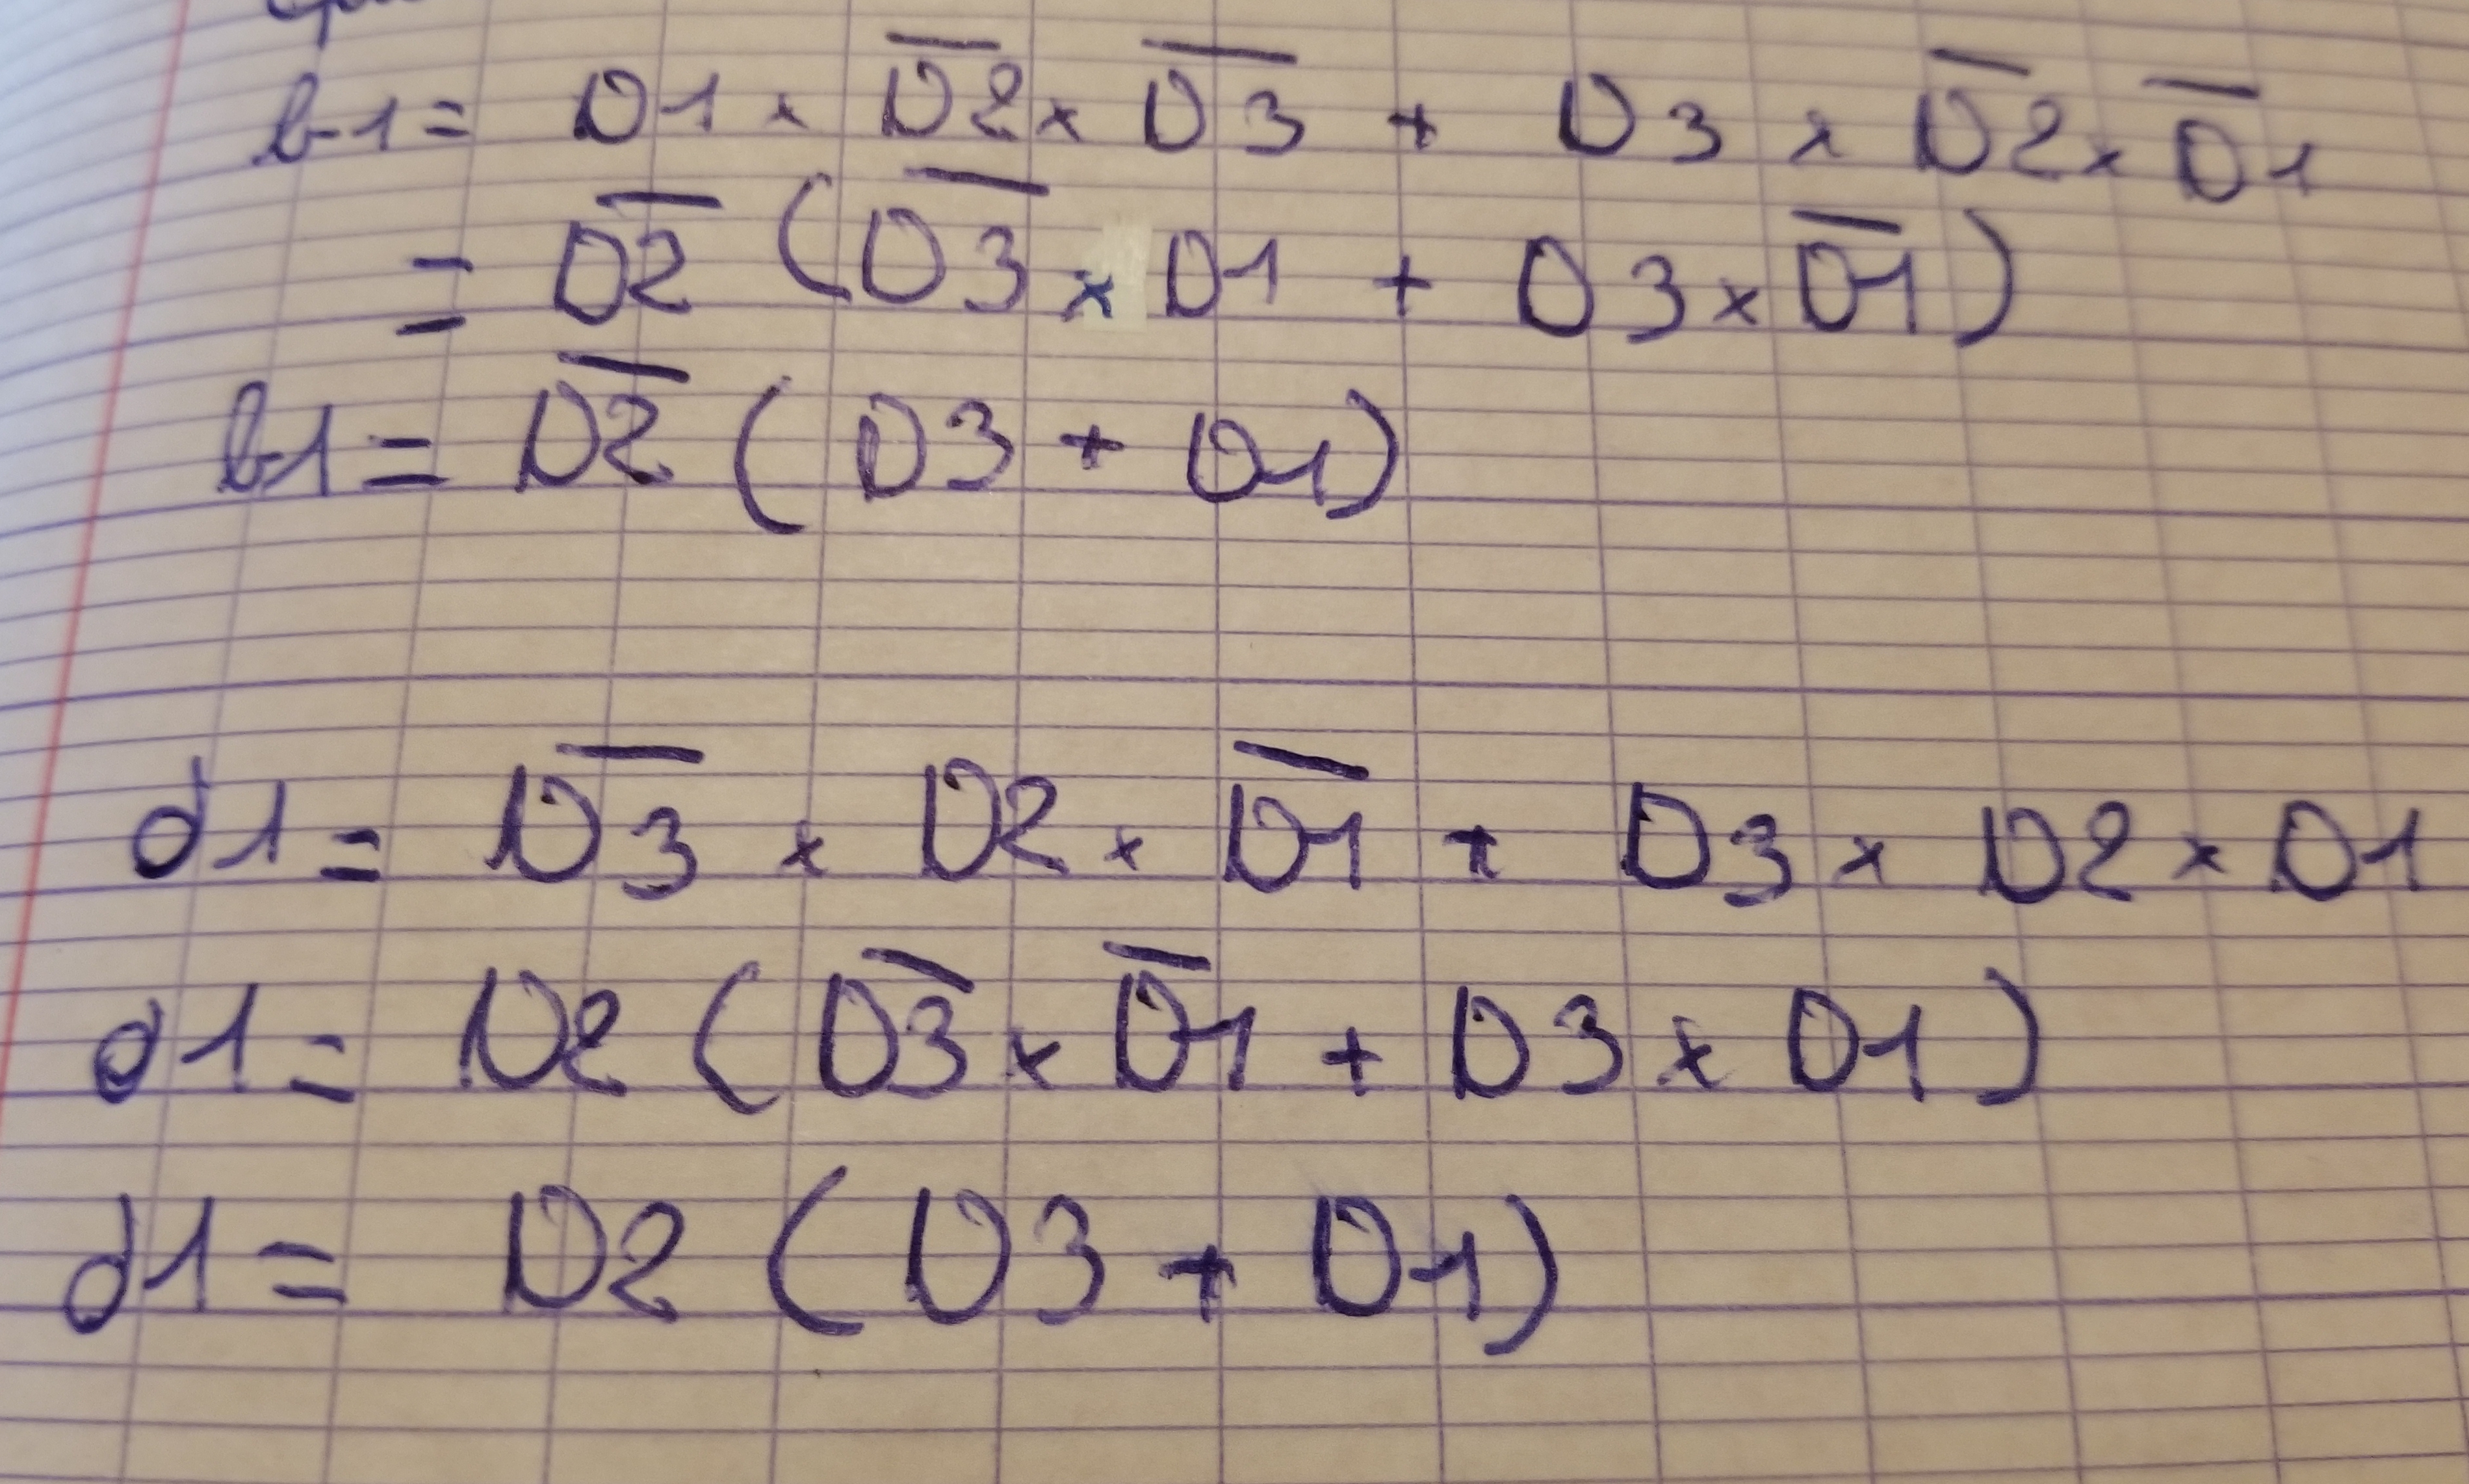 b1 = D1 × D̅2̅ × D̅3̅ + D3 × D̅2̅ × D̅1̅
= D̅2̅ (D̅3̅ × D1 + D3 × D̅1̅)
b1 = D̅2̅ (D3 + D1)
d1 = D̅3̅ × D2 × D̅1̅ + D3 × D2 × D1
d1 = D2 (D̅3̅ × D̅1̅ + D3 × D1)
d1 = D2 (D3 + D1)